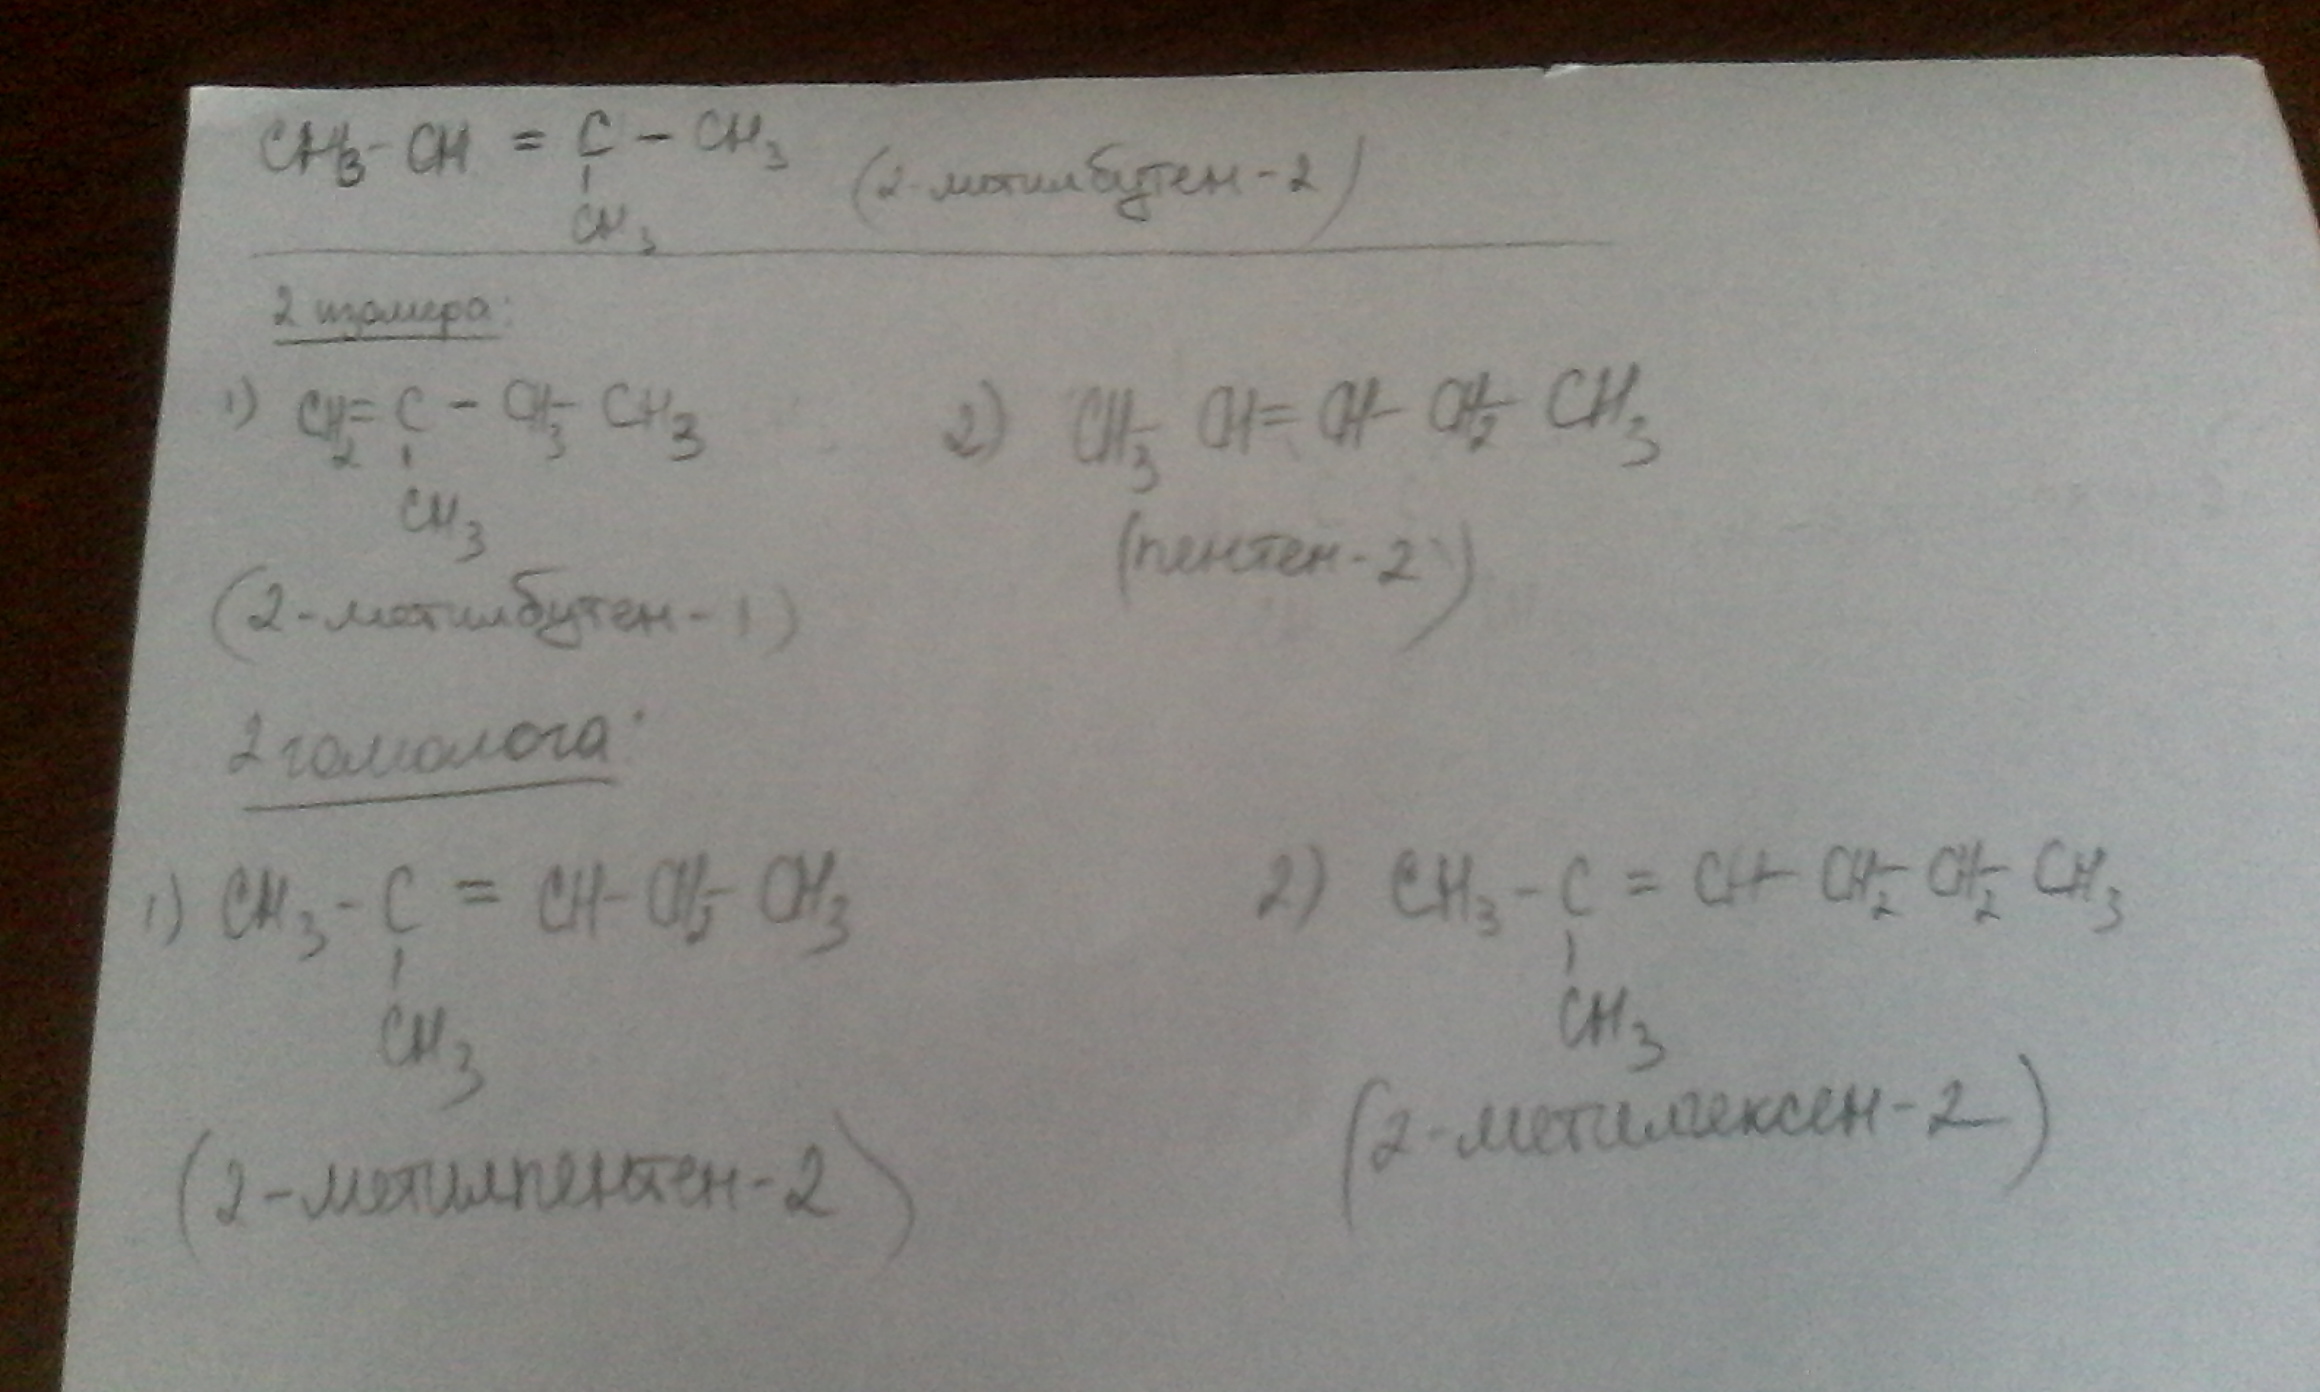 CH3-CH = C - CH3 (2-метилбутен-2)
CH3
2 изомера:
1) CH2= C - CH3- CH3
CH3
(2-метилбутен-1)
2) CH3- CH= CH- CH2- CH3
(пентен-2)
2 гомолога:
1) CH3- C = CH- CH2- CH3
CH3
(2-метилпентен-2)
2) CH3- C = CH- CH2- CH2- CH3
CH3
(2-метилгексен-2)